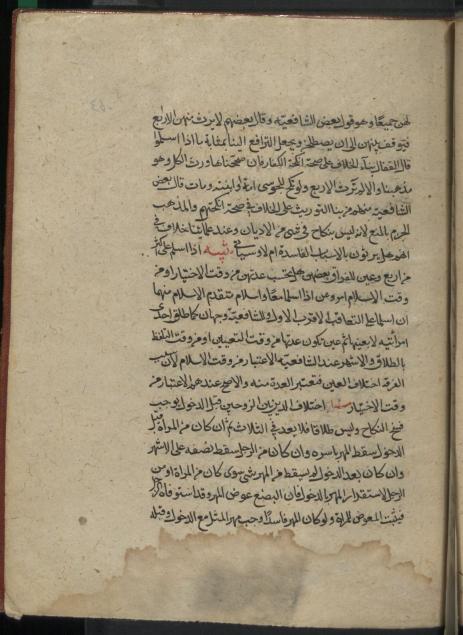 لهن جميعا وهو قول بعض الشافعية وقال بعضهم لا يرث منهن الاربع
فيوقف بينهن الى ان يصطلحن ويجعل الترافع الينا بمثابة ما اذا اسلموا
قال القفال بناء الخلاف على صحة انكحة الكفار فان صححناها ورث الكل وهو
مذهبنا والا لم يرث الا الاربع ولو نكح المجوسي امه او ابنته ومات قال بعض
الشافعية منهم من بنا التوريث على الخلاف في صحة انكحتهم والمذهب
الجزم بالمنع لانه ليس بنكاح في شيء من الاديان وعند علمائنا خلاف في
انهم هل يرثون بالاسباب الفاسدة ام لا وسيأتي تنبيه اذا اسلم على اكثر
من اربع وعين للفراق بعضهن هل تحتسب عدتهن من وقت الاختيار او من
وقت الاسلام امرو من اذا اسلما معا واسلام متقدم الاسلام منهما
ان اسلما على التعاقب الاقرب الاول وللشافعية وجهان كما طلق احدى
امرأتيه لا بعينها ثم عين تكون عدتها من وقت التعيين او من وقت التلفظ
بالطلاق والاشهر عند الشافعية الاعتبار من وقت الاسلام لان سبب
الفرقة اختلاف الدين فتعتبر العدة منه والاصح عندهم الاعتبار من
وقت الاختيار اختلاف الدين بين الزوجين قبل الدخول يوجب
فسخ النكاح وليس طلاقا فلا يعد في الثلاث ثم ان كان من المرأة قبل
الدخول سقط المهر باسره وان كان من الرجل سقط نصفه على الاشهر
وان كان بعد الدخول لم يسقط من المهر شيء سوى كان من المرأة او من
الرجل لاستقرار المهر بالدخول فان البضع عوض المهر وقد استوفاه الرجل
فيثبت المعوض للمرأة ولو كان المهر فاسدا وجب مهر المثل مع الدخول وقبله